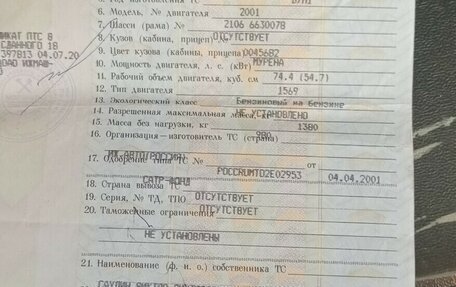 5. Год изготовления ТС
6. Модель, № двигателя 2001
7. Шасси (рама) № 2106 6630078
8. Кузов (кабина, прицеп) № ОТСУТСТВУЕТ
9. Цвет кузова (кабины, прицепа) 0045682
10. Мощность двигателя, л. с. (кВт) МУРЕНА
11. Рабочий объем двигателя, куб. см 74.4 (54.7)
12. Тип двигателя 1569
13. Экологический класс Бензиновый на Бензине
14. Разрешенная максимальная масса, кг НЕ УСТАНОВЛЕНО
15. Масса без нагрузки, кг 1380
16. Организация—изготовитель ТС (страна) 980
17. Одобрение типа ТС № РОССRUМТ02Е02953 от 04.04.2001
18. Страна вывоза ТС
19. Серия, № ТД, ТПО ОТСУТСТВУЕТ
20. Таможенные ограничения ОТСУТСТВУЕТ
НЕ УСТАНОВЛЕНЫ
21. Наименование (ф. и. о.) собственника ТС
ИКАТ ПТС 8
СДАННОГО 18
397813 04.07.20
ОАО ИЖМАШ-